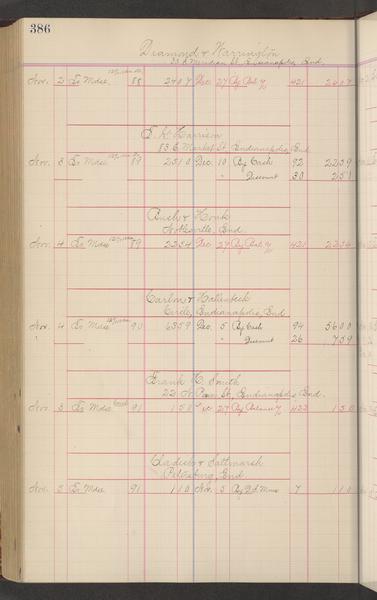 386
Diamond & Warrington
33 S Meridian St. Indianapolis, Ind.
Nov. 2 To Mdse. 88 2407 Dec. 27 By Bal. 421 2407
Harrison
83 E Market St, Indianapolis, Ind
Nov. 3 To Mdse 89 2510 Dec. 10 By Cash 92 2259
" Discount 30 251
Bush &
Ind.
Nov. 4 To Mdse 89 2254 Dec 27 By Bal. 421 2254
Carlon & Hollenbeck
Circle, Indianapolis, Ind
Nov. 4 To Mdse 90 6359 Dec. 5 By Cash 94 5600
" " Discount 26 759
Frank C. Smith
22 N Penn St, Indianapolis Ind.
Nov. 5 To Mdse 91 150 Dec 27 By Balance 422 150
& Saltmarsh
Petersburg, Ind
Nov. 5 To Mdse 91 110 Nov. 5 By Mdse 7 110